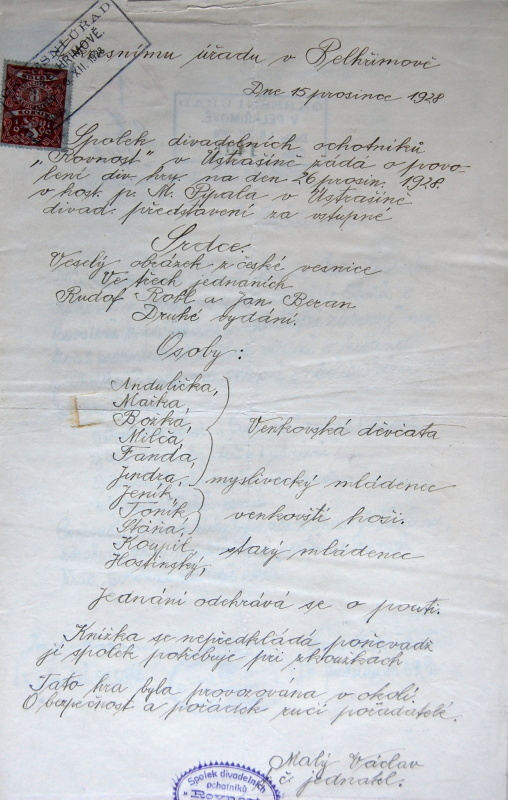 Okresnímu úřadu v Pelhřimově
Dne 15 prosince 1928
Spolek divadelních ochotníků
„Rovnost" v Ústrašíně žádá o povo-
lení div. hry na den 26 prosin. 1928.
v host. p. M. Pypala v Ústrašíně
divad. představení za vstupné
Srdce.
Veselý obrázek z české vesnice
Ve třech jednáních
Rudof Robl a Jan Beran
Druhé vydání.
Osoby:
Andulička,
Mařka
Božka,
Milča,
Fanda,
Venkovská děvčata
Jindra, myslivecký mládenec
Jeník,
Toník
Stáňa,
venkovští hoši.
Koupil, starý mládenec
Hostinský,
Jednání odehrává se o pouti.
Knížka se nepředkládá poněvadž
jí spolek potřebuje při zkouškách
Tato hra byla provozována v okolí.
O bezpečnost a pořádek ručí pořadatelé.
Malý Václav
č. jednatel.
Spolek divadelních
ochotníků
„ROVNOST"